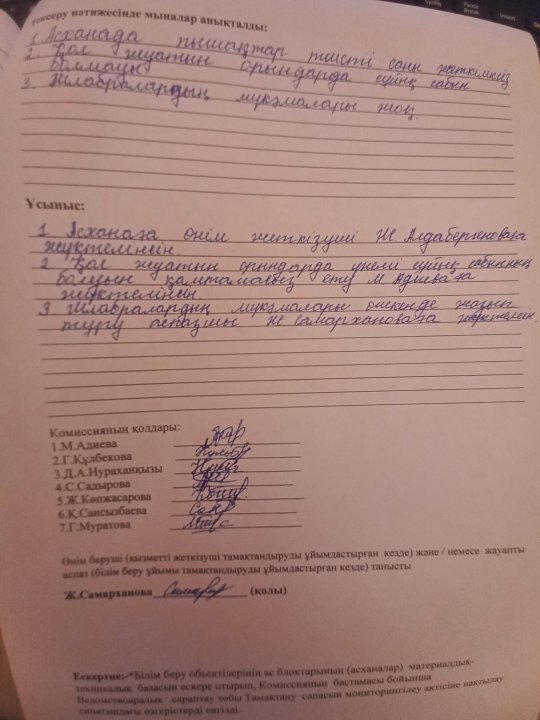 тексеру нәтижесінде мыналар анықталды:
1. Асханада пышақтар тиісті саны жеткіліксіз
2. Қол жуатын орындарда сұйық сабын
болмауы
3. Жілабралардың мұқмалары жоқ.
Ұсыныс:
1 Асханаға өнім жеткізуші Ж. Алдабергеноваға
жүктелінсін.
2 Қол жуатын орындарда үнемі сұйық сабынның
болуын қамтамасыз ету М. Адиеваға
жүктелінсін.
3 Жілабралардың мұқмалары жазып
тұру аспазшы Ж Самархановаға жүктелсін.
Комиссияның қолдары:
1.М.Адиева
2.Г.Құлбекова
3.Д.А.Нураханқызы
4.С.Садырова
5.Ж.Көпжасарова
6.Қ.Сансызбаева
7.Г.Муратова
Өнім беруші (қызметті жеткізуші тамақтандыруды ұйымдастырған кезде) және / немесе жауапты
аспаз (білім беру ұйымы тамақтандыруды ұйымдастырған кезде) танысты
Ж.Самарханова (қолы)
Ескертпе:-*Білім беру объектілерінің ас блоктарының (асханалар) материалдық-
техникалық базасын ескере отырып, Комиссияның бастамасы бойынша
Ведомствоаралық сараптау тобы Тамақтану сапасын мониторингілеу актісіне нақтылау
сипатындағы өзгерістерді енгізді.